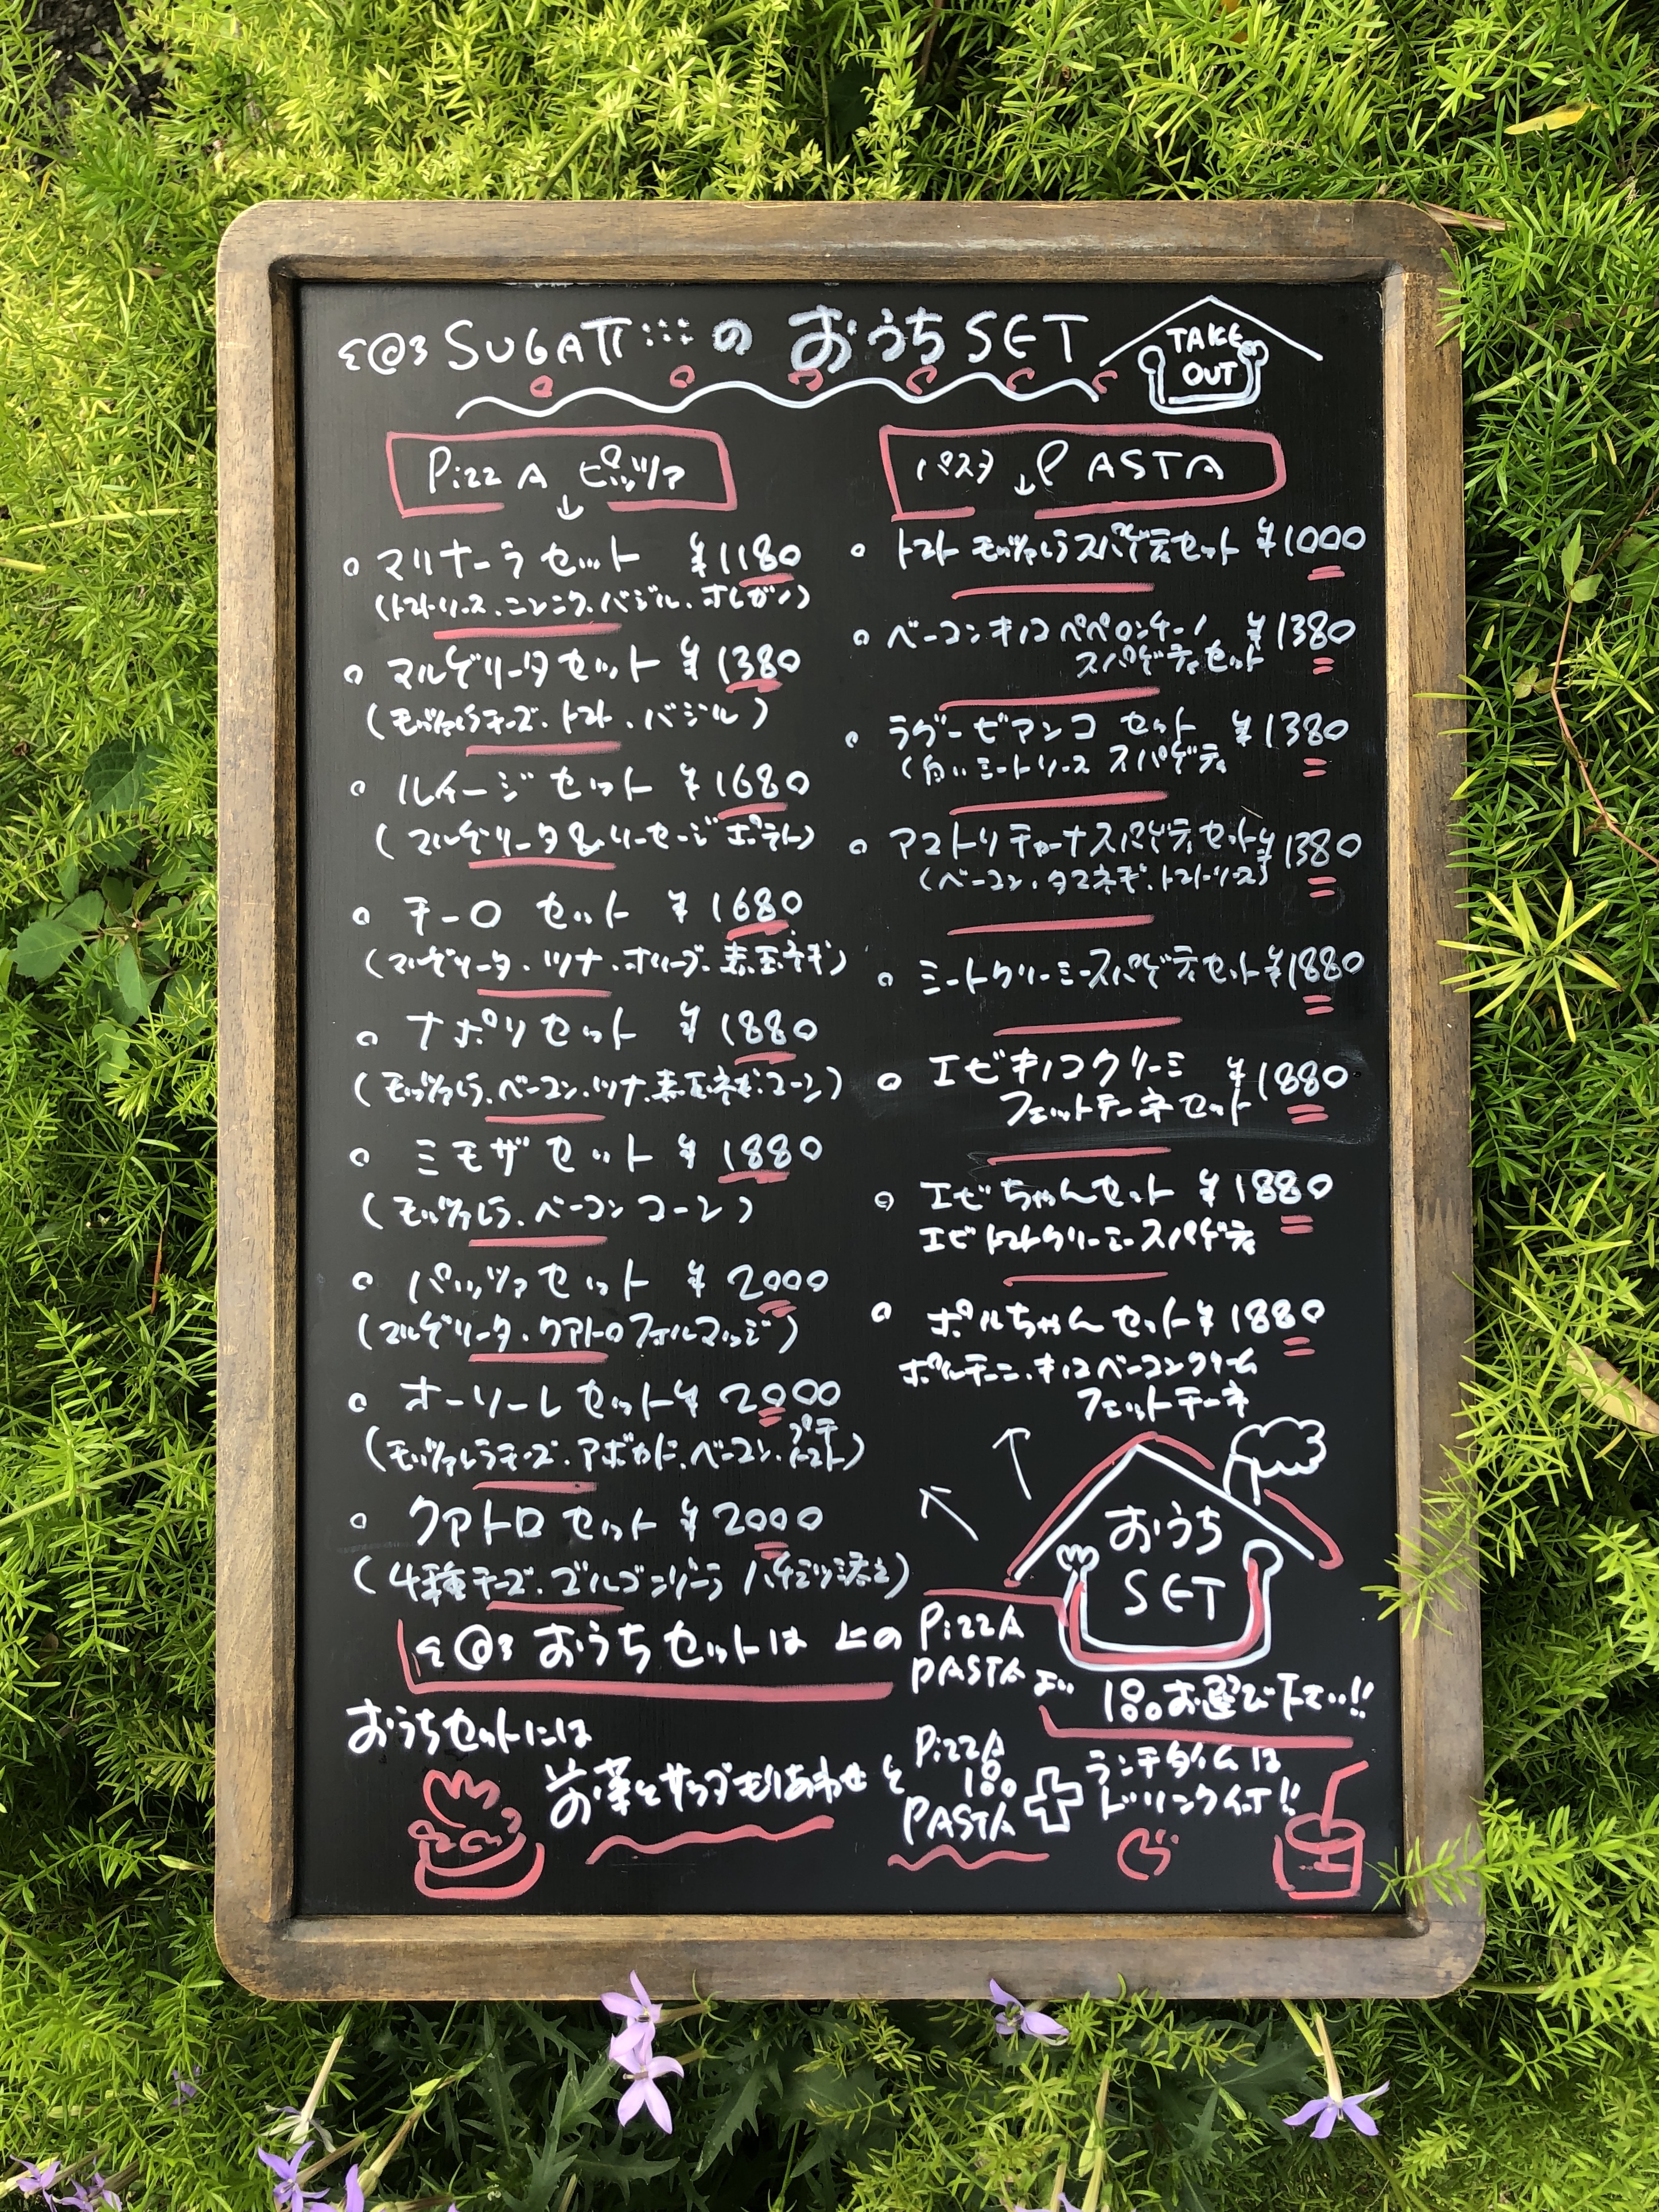 SUGATTI のおうちSET
TAKE OUT
PizzA ピッツァ
マリナーラセット ¥1180
(トマトソース、ニンニク、バジル、オレガノ)
マルゲリータセット ¥1380
(モッツァレラチーズ、トマト、バジル)
ルイージセット ¥1680
(マルゲリータ&ソーセージポテト)
チーロ セット ¥1680
(マルゲリータ、ツナ、オリーブ、赤玉ネギ)
ナポリセット ¥1880
(モッツァレラ、ベーコン、ツナ、赤玉ネギ、コーン)
ミモザセット ¥1880
(モッツァレラ、ベーコン コーン)
パッツァセット ¥2000
(マルゲリータ、クアトロフォルマッジ)
オーソーレセット¥2000
(モッツァレラチーズ、アボカド、ベーコン、プチトマト)
クアトロセット¥2000
(4種チーズ、ゴルゴンゾーラ ハチミツ添え)
パスタ PASTA
トマト モッツァレラスパゲティセット ¥1000
ベーコンキノコペペロンチーノ ¥1380
スパゲティセット
ラグービアンコ セット ¥1380
(白いミートソース スパゲティ
アマトリチャーナスパゲティセット¥1380
(ベーコン、タマネギ、トマトソース)
ミートクリーミースパゲティセット¥1880
エビキノコクリーミ ¥1880
フェットチーネセット
エビちゃんセット ¥1880
エビトマトクリーミースパゲティ
ポルちゃんセット¥1880
ポルチーニ、キノコベーコンクリーム
フェットチーネ
おうち
SET
おうちセットは 上の PizzA
PASTA より 1品お選び下さい!!
おうちセットには
前菜とサラダもりあわせと
PizzA
1品
PASTA
ランチタイムは
ドリンク付!!